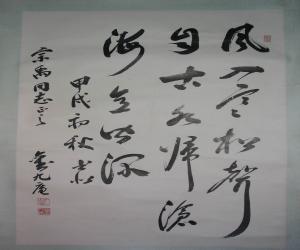 风入寒松声
自古水归沧
海立皆深
甲戌初秋书
宗禹同志正之
金九庵